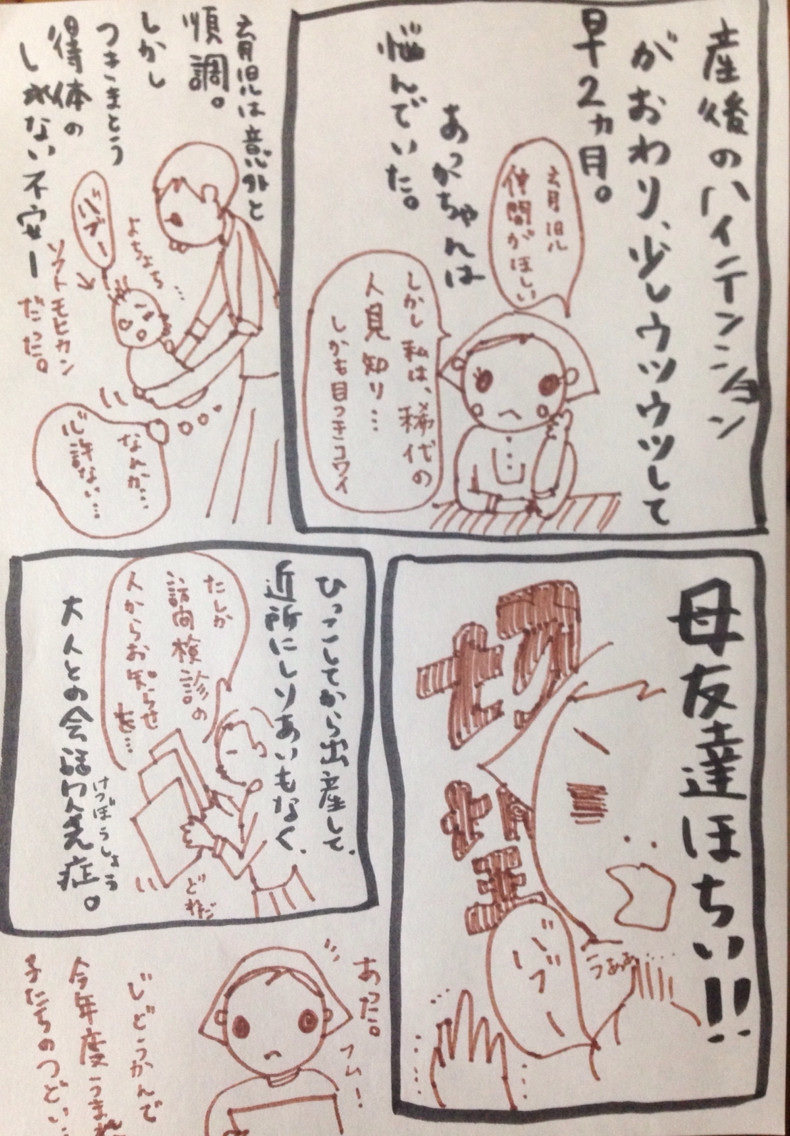 産後のハイテンション
がおわり、少しウツウツして
早2ヵ月。
育児
仲間がほしい
あっかちゃんは
悩んでいた。
しかし私は、稀代の
人見知り…
しかも目つきコワイ
育児は意外と
順調。
しかし
つきまとう
得体の
しれない不安ー
だった。
よちよち…
バブー
ソフトモヒカン
なんか…
心許ない…
母友達ほちい!!
切実
うぁぁ
バブー
ひっこしてから出産して、
近所にしりあいもなく、
たしか
訪問検診の
人からお知らせ
を…
どれだ
大人との会話欠乏症。
けつぼうしょう
あった。
フム!
じどうかんで
今年度うまれ
子たちのつどい…